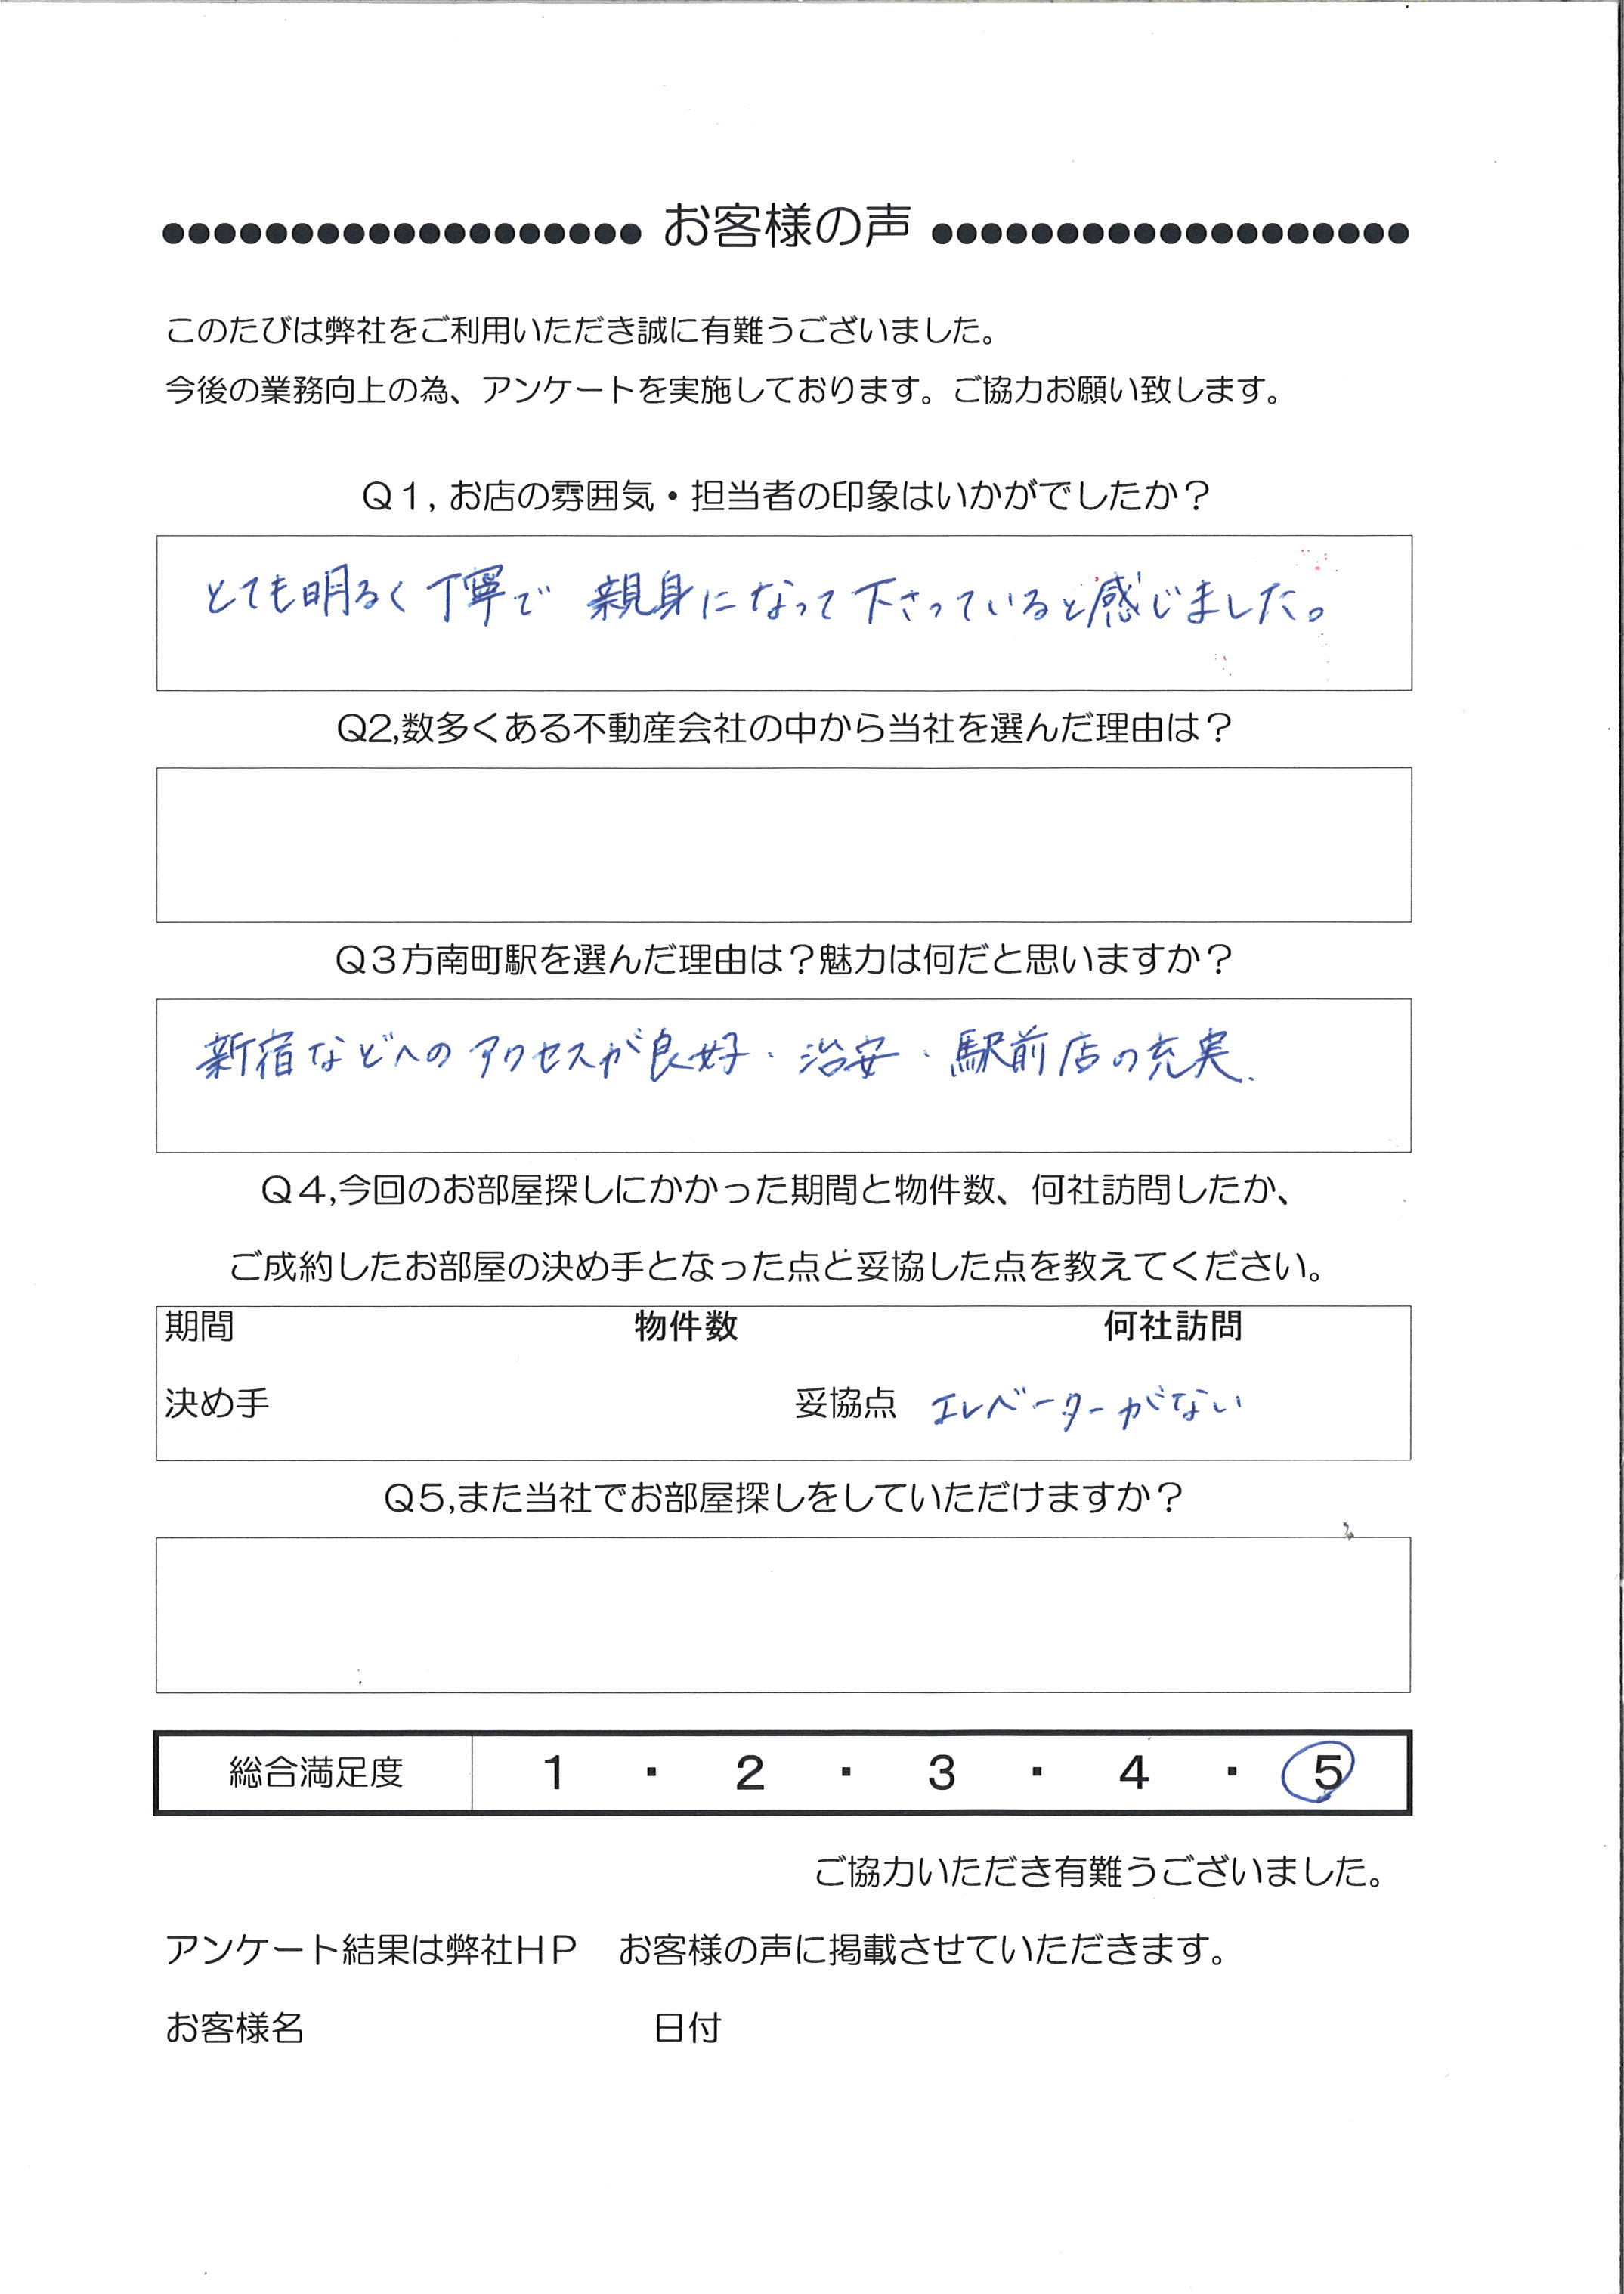 ●●●●●●●●●●●●●●●●●●● お客様の声 ●●●●●●●●●●●●●●●●●●●
このたびは弊社をご利用いただき誠に有難うございました。
今後の業務向上の為、アンケートを実施しております。ご協力お願い致します。
Q１, お店の雰囲気・担当者の印象はいかがでしたか？
とても明るく丁寧で 親身になって下さっていると感じました。
Q2,数多くある不動産会社の中から当社を選んだ理由は？
Q３方南町駅を選んだ理由は？魅力は何だと思いますか？
新宿などへのアクセスが良好・治安・駅前店の充実.
Q４,今回のお部屋探しにかかった期間と物件数、何社訪問したか、
ご成約したお部屋の決め手となった点と妥協した点を教えてください。
期間 物件数 何社訪問
決め手 妥協点 エレベーターがない
Q５,また当社でお部屋探しをしていただけますか？
総合満足度 1 ・ 2 ・ 3 ・ 4 ・ 5
ご協力いただき有難うございました。
アンケート結果は弊社ＨＰ　お客様の声に掲載させていただきます。
お客様名 日付